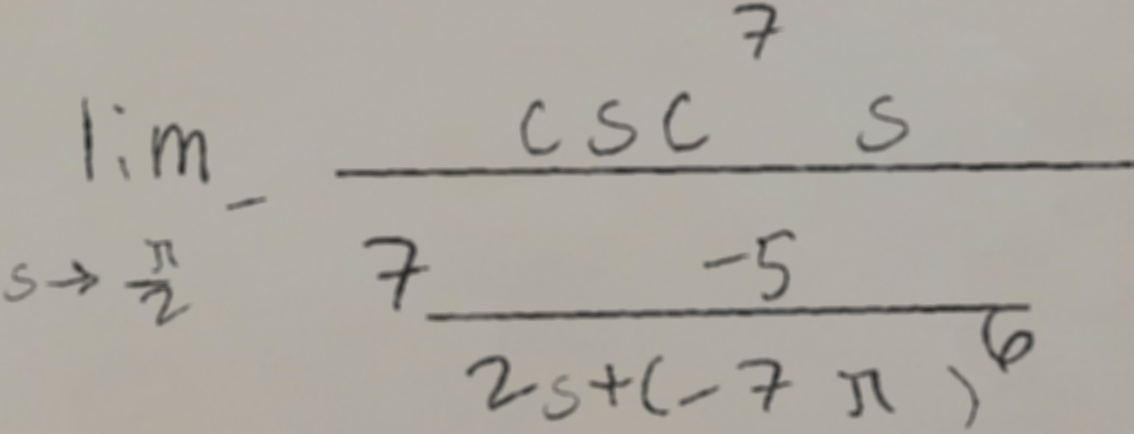 \lim_{s \to \frac{\pi}{2}^{-}} \frac{\csc^{7} s}{7 \frac{-5}{2s + (-7\pi)^{6}}}